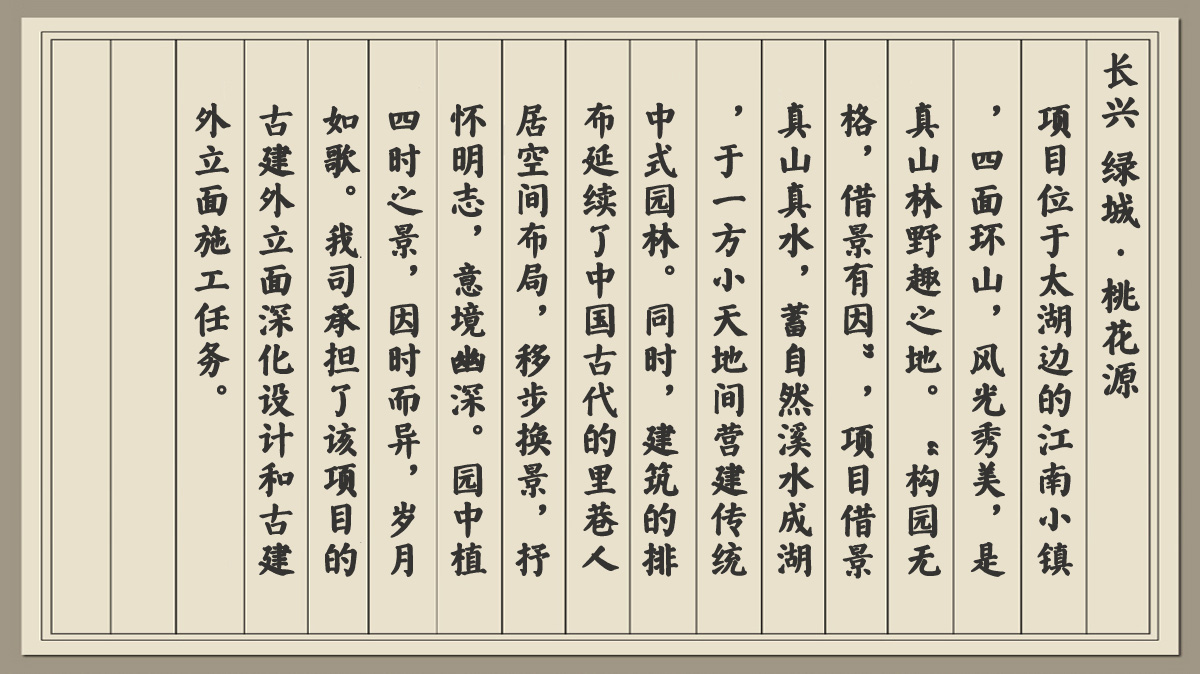 长兴 绿城·桃花源
项目位于太湖边的江南小镇
，四面环山，风光秀美，是
真山林野趣之地。“构园无
格，借景有因”，项目借景
真山真水，蓄自然溪水成湖
，于一方小天地间营建传统
中式园林。同时，建筑的排
布延续了中国古代的里巷人
居空间布局，移步换景，抒
怀明志，意境幽深。园中植
四时之景，因时而异，岁月
如歌。我司承担了该项目的
古建外立面深化设计和古建
外立面施工任务。